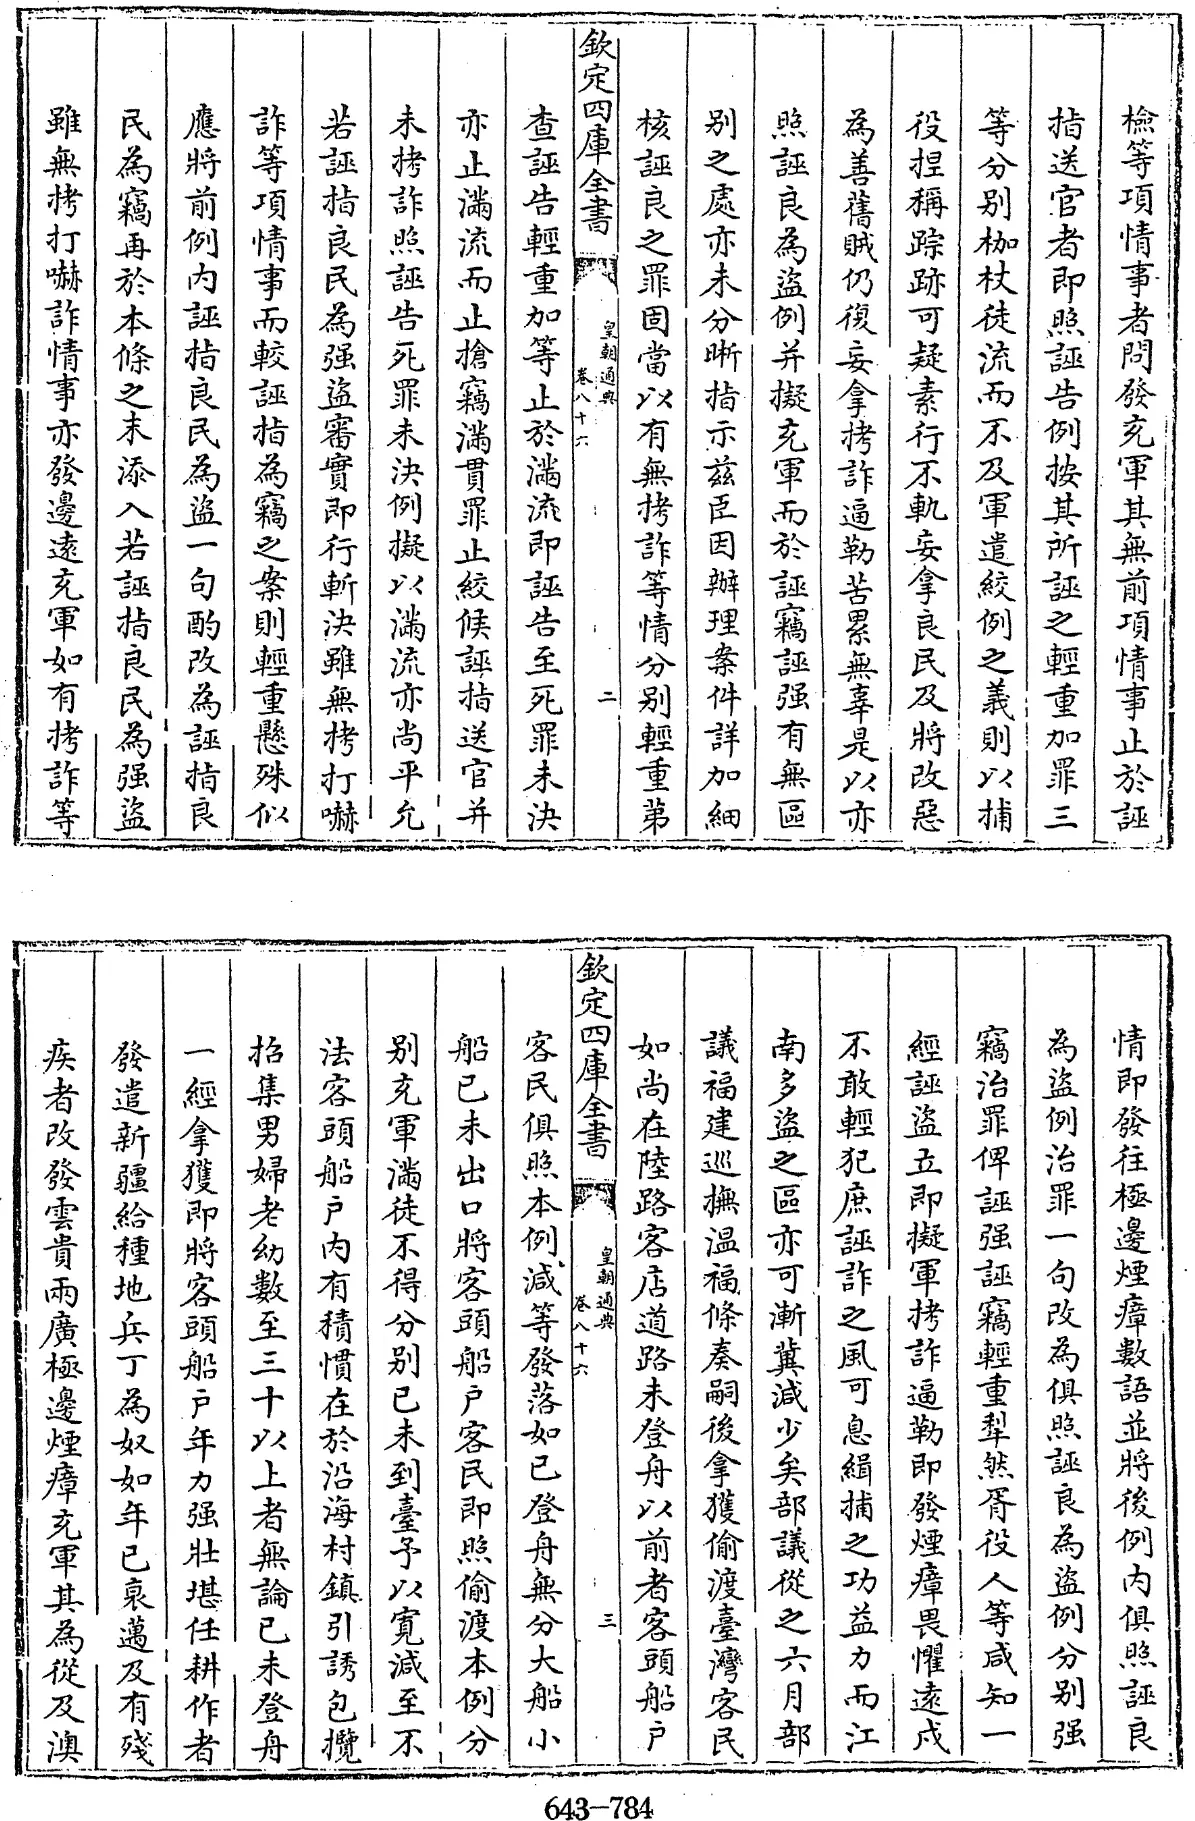 檢等項情事者問發充軍其無前項情事止於誣
指送官者即照誣告例按其所誣之輕重加罪三
等分别枷杖徒流而不及軍遣絞例之義則以捕
役揑稱踪跡可疑素行不軌妄拿良民及將改惡
為善舊賊仍復妄拿拷詐逼勒苦累無辜是以亦
照誣良為盜例并擬充軍而於誣竊誣强有無區
别之處亦未分晰指示兹臣因辦理案件詳加細
核誣良之罪固當以有無拷詐等情分别輕重第
欽定四庫全書
皇朝通典
卷八十六
二
查誣告輕重加等止於滿流即誣告至死罪未決
亦止滿流而止搶竊滿貫罪止絞候誣指送官并
未拷詐照誣告死罪未決例擬以滿流亦尚平允
若誣指良民為强盜審實即行斬決雖無拷打嚇
詐等項情事而較誣指為竊之案則輕重懸殊似
應將前例内誣指良民為盜一句酌改為誣指良
民為竊再於本條之末添入若誣指良民為强盜
雖無拷打嚇詐情事亦發邊遠充軍如有拷詐等
情即發往極邊煙瘴數語並將後例内俱照誣良
為盜例治罪一句改為俱照誣良為盜例分别强
竊治罪俾誣强誣竊輕重犁然胥役人等咸知一
經誣盜立即擬軍拷詐逼勒即發煙瘴畏懼遠戍
不敢輕犯庶誣詐之風可息緝捕之功益力而江
南多盜之區亦可漸冀減少矣部議從之六月部
議福建巡撫温福條奏嗣後拿獲偷渡臺灣客民
如尚在陸路客店道路未登舟以前者客頭船户
欽定四庫全書
皇朝通典
卷八十六
三
客民俱照本例減等發落如已登舟無分大船小
船已未出口將客頭船户客民即照偷渡本例分
别充軍滿徒不得分别已未到臺予以寬減至不
法客頭船户内有積慣在於沿海村鎮引誘包攬
招集男婦老幼數至三十以上者無論已未登舟
一經拿獲即將客頭船户年力强壯堪任耕作者
發遣新疆給種地兵丁為奴如年已衰邁及有殘
疾者改發雲貴兩廣極邊煙瘴充軍其為從及澳
643-784